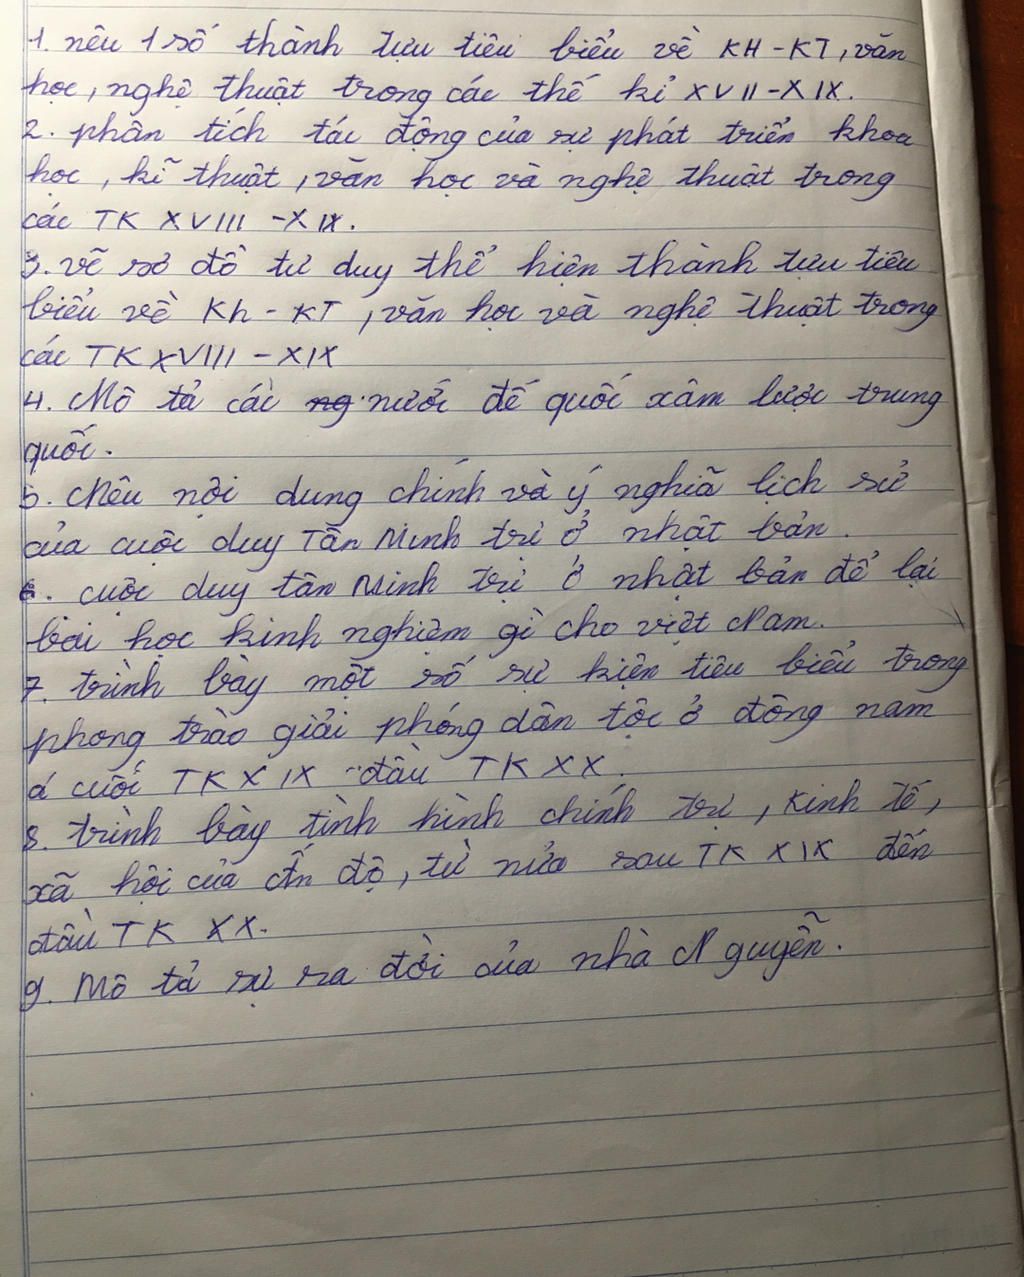 1. nêu 1 số thành tựu tiêu biểu về KH-KT, văn
học, nghệ thuật trong các thế kỉ XVII-XIX.
2. phân tích tác động của sự phát triển khoa
học, kĩ thuật, văn học và nghệ thuật trong
các TK XVIII - XIX.
3. vẽ sơ đồ tư duy thể hiện thành tựu tiêu
biểu về Kh - KT, văn học và nghệ thuật trong
các TK XVIII - XIX
4. Mô tả các nước đế quốc xâm lược trung
quốc.
5. Nêu nội dung chính và ý nghĩa lịch sử
của cuộc duy Tân Minh trị ở nhật bản.
6. cuộc duy tân Minh trị ở nhật bản để lại
bài học kinh nghiệm gì cho việt Nam.
7. trình bày một số sự kiện tiêu biểu trong
phong trào giải phóng dân tộc ở đông nam
á cuối TK XIX - đầu TK XX.
8. trình bày tình hình chính trị, kinh tế,
xã hội của ấn độ, từ nửa sau TK XIX đến
đầu TK XX.
9. Mô tả sự ra đời của nhà Nguyễn.